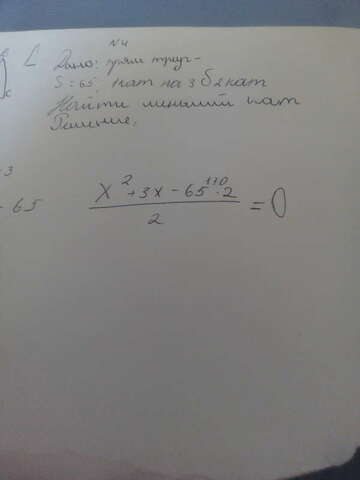 N4
Дано: прям треуг-
S = 65. кат на 3 б 2 кат
Найти меньший кат
Решение,
3
65
x² + 3x - 65 · 2 = 0
130
2